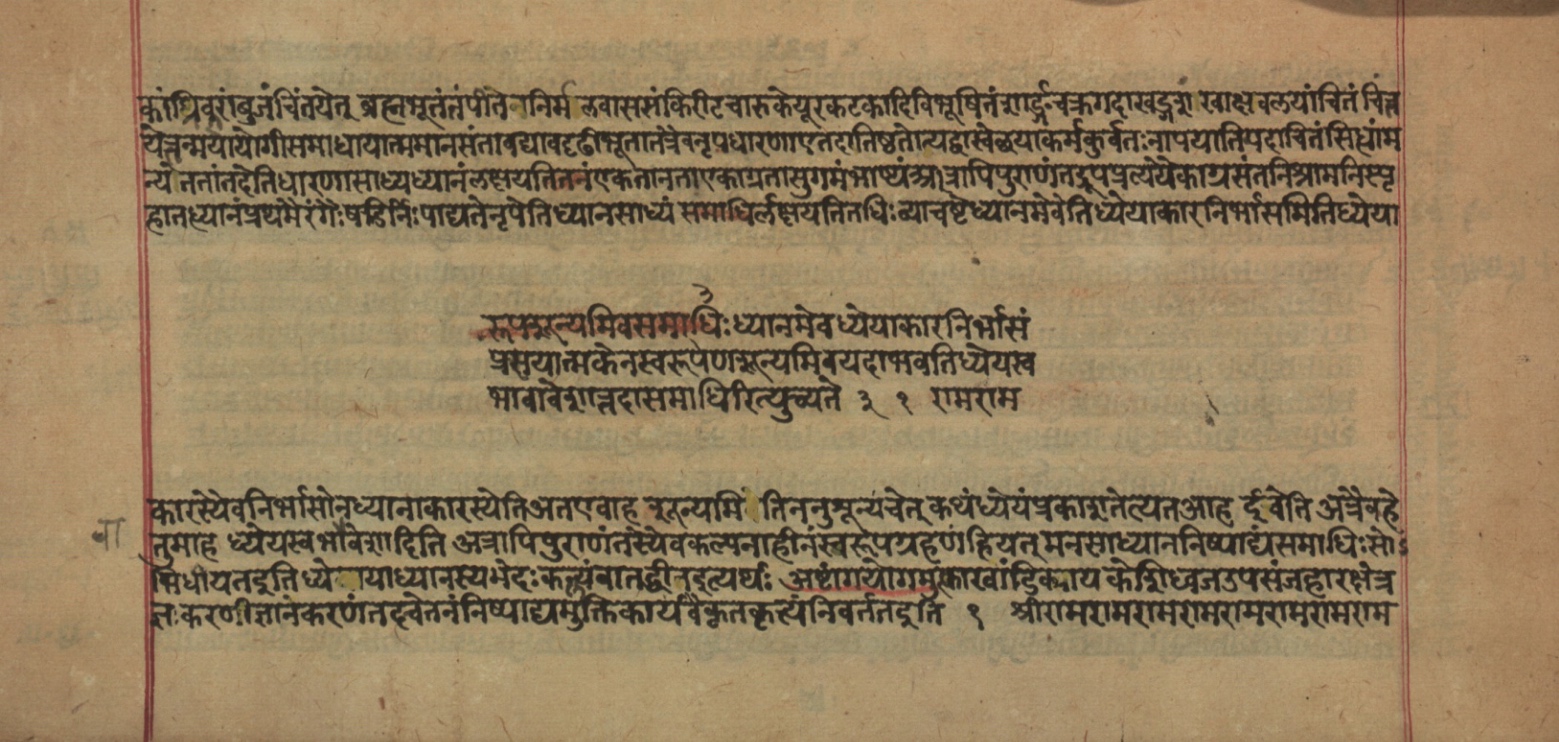 कांघ्रिवरांबुजं चिंतयेत् ब्रह्मभूतंतंपीत निर्मलवाससं किरीटचारुकेयूरकटकादिविभूषितं शार्ङ्गचक्रगदाखङ्गशंखाक्षवलयांचितं चिंत
येत्तन्मयायोगीसमाधायात्ममानसंतावद्यावदृढीभूतातत्रैवनृपधारणाएतदातिष्ठतोन्यद्वास्वेछयाकर्मकुर्वतःनापयातियदाचितंसिद्धांम
न्येततांतदेतिधारणासाध्यध्यानंलक्षयतितत्रंएकतानताएकाग्रतासुगमंभाष्यंअत्रापिपुराणंतद्रूपप्रत्ययेकाग्रसंतनिश्रामनिस्पृ
हातध्यानंप्रथमैरंगैःषडिर्निःपाद्यतेनृपेतिध्यानसाध्यं समाधिर्लक्षयतितधिःव्याचष्टेध्यानमेवेतिध्येयाकारनिर्भासमितिध्येया
रूपशून्यमिवसमाधिः३ध्यानमेवध्येयाकारनिर्भासं
प्रत्ययात्मकेनस्वरूपेणशून्यमिवयदाभवतिध्येयस्व
भावावेशात्तदासमाधिरित्युच्यते ३ १ रामराम
कारस्येवनिर्भासोनध्यानाकारस्येतिअतएवाह शून्यमि तिननुशून्यंचेत् कथंध्येयंप्रकाशतेत्यतआह र्इवेति अत्रैवहे
तुमाह ध्येयस्वभावेशादिति अत्रापिपुराणंतस्येवकल्पनाहीनंस्वरूपग्रहणंहियत् मनसाध्याननिष्पाद्यंसमाधिःसो
भिधीयतइतिध्ये याध्यानस्यभेदःकल्पनातद्धीनइत्यर्थः अष्टांगयोगमुक्त्वाखांडिक्याय केशिध्वजउपसंजहारक्षेत्र
ज्ञःकरणीज्ञानंकरणंतदचेतनंनिष्पाद्यमुक्तिकार्यंवैकृतकृत्यंनिवर्ततइति १ श्रीरामरामरामरामरामरामरामराम